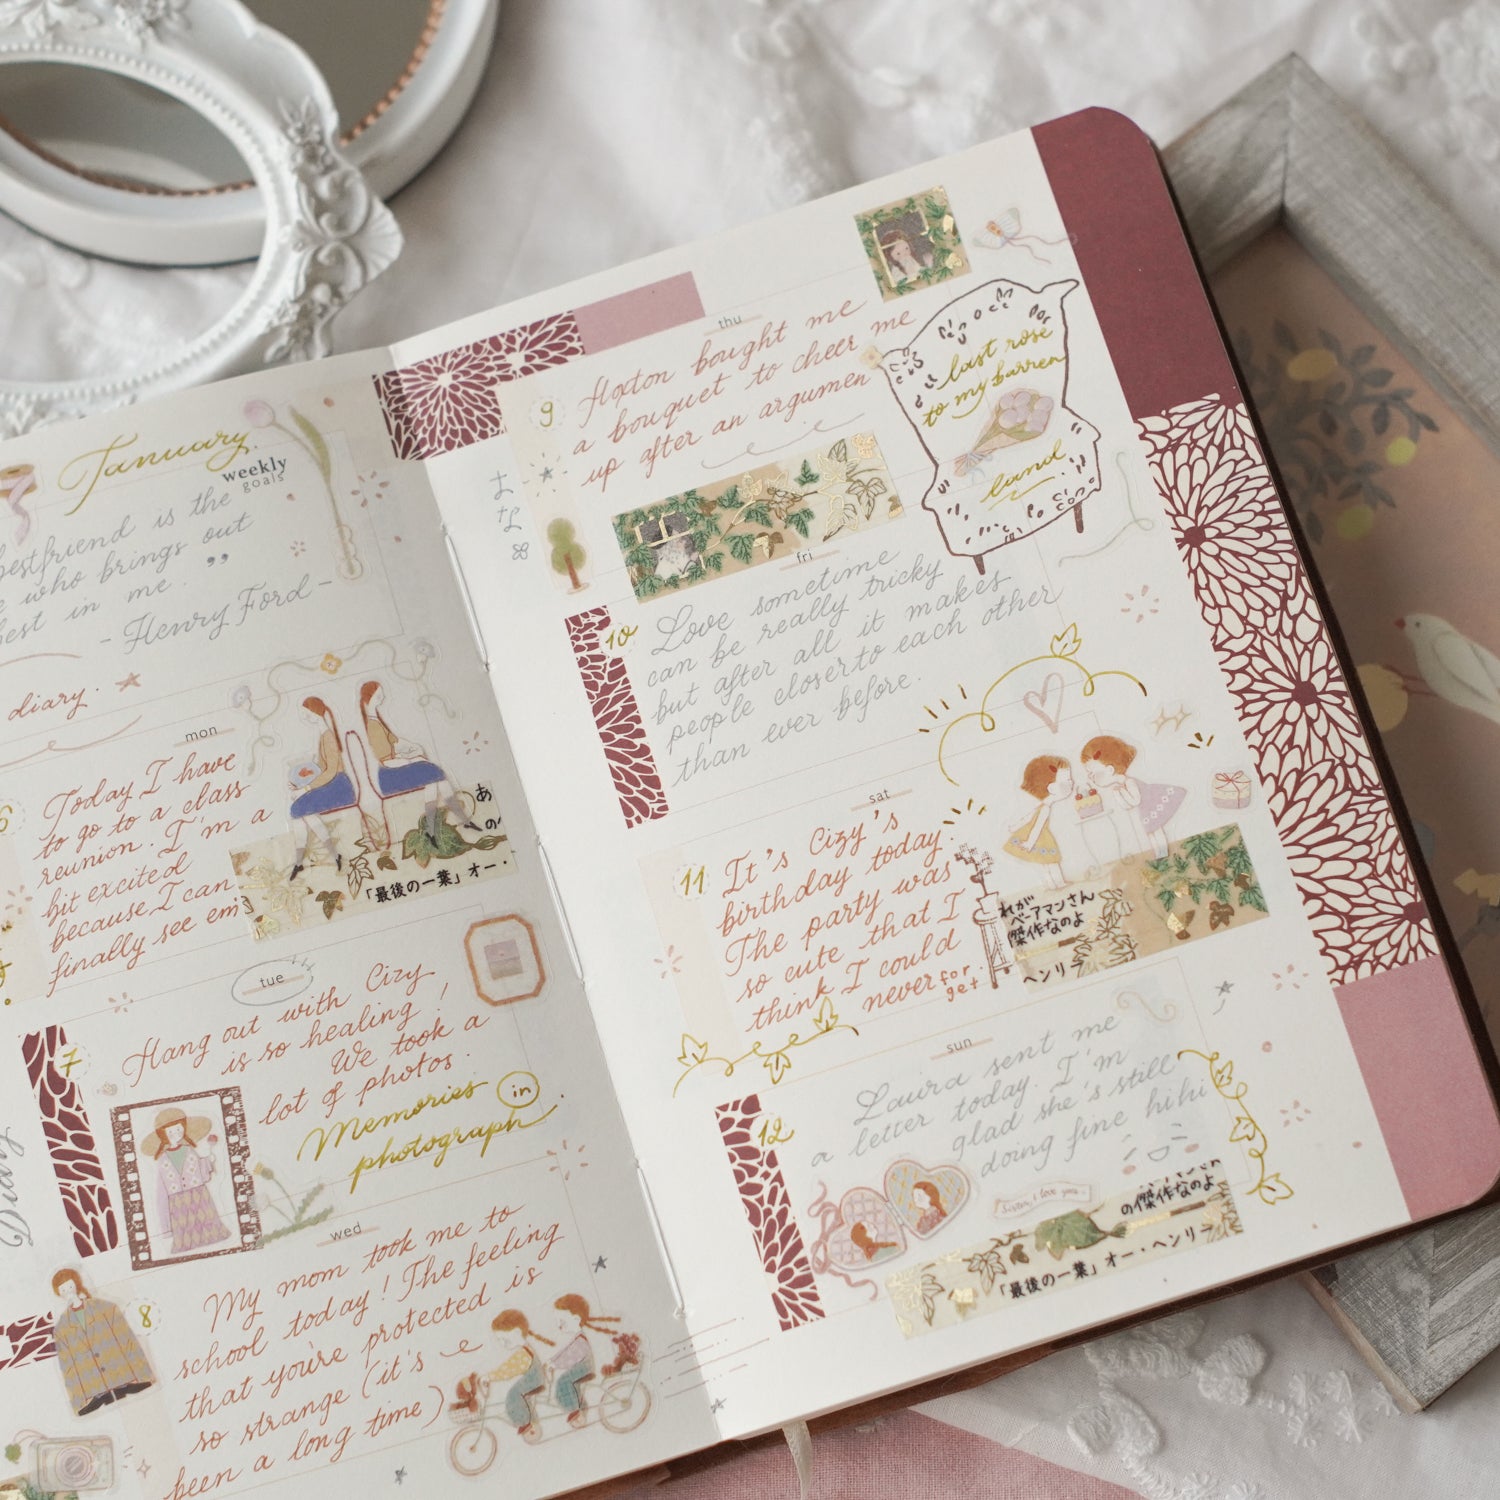 January
weekly
goals
bestfriend is the
who brings out
best in me. ”
- Henry Ford -
diary.
mon
6
Today I have
to go to a class
reunion. I'm a
bit excited
because I can
finally see em
あ
の
「最後の一葉」オー・
tue
7
Hang out with Cizy
is so healing!
We took a
lot of photos.
Memories in
photograph.
Diary
wed
8
My mom took me to
school today! The feeling
that you're protected is
so strange (it's
been a long time)
thu
9
Hoxton bought me
a bouquet to cheer me
up after an argumen
last rose
to my barren
land
fri
10
Love sometime
can be really tricky
but after all it makes
people closer to each other
than ever before.
sat
11
It's Cizy's
birthday today.
The party was
so cute that I
think I could
never for
get
れが
ベーアマンさん
傑作なのよ
ヘンリ
sun
12
Lauira sent me
a letter today. I'm
glad she's still
doing fine hihi
Sister, I love you
の傑作なのよ
「最後の一葉」オー・ヘンリー